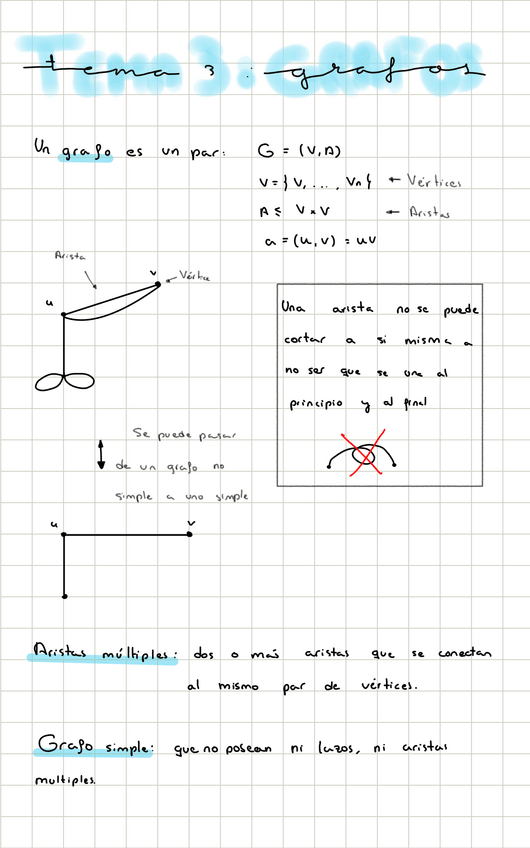 Tema 3: Grafos
tema 3: grafos
Un grafo es un par: G = (V,A)
V = { V, ..., Vn } ← Vértices
A ≤ V x V ← Aristas
a = (u,v) = uv
Arista
v ← Vértice
u
Una arista no se puede
cortar a si misma a
no ser que se una al
principio y al final
Se puede pasar
de un grafo no
simple a uno simple
u v
Aristas múltiples: dos o más aristas que se conectan
al mismo par de vértices.
Grafo simple: que no posean ni lazos, ni aristas
multiples.